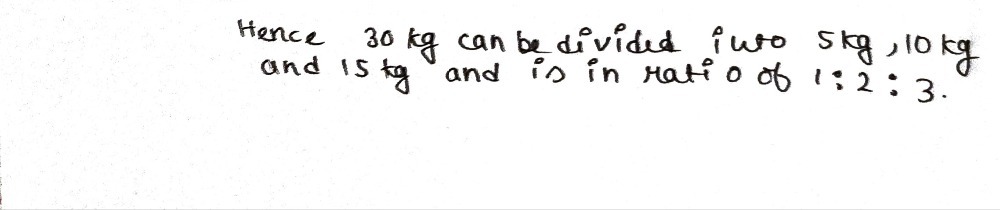 Hence 30 kg can be divided into 5kg, 10 kg
and 15 kg and is in ratio of 1:2:3.